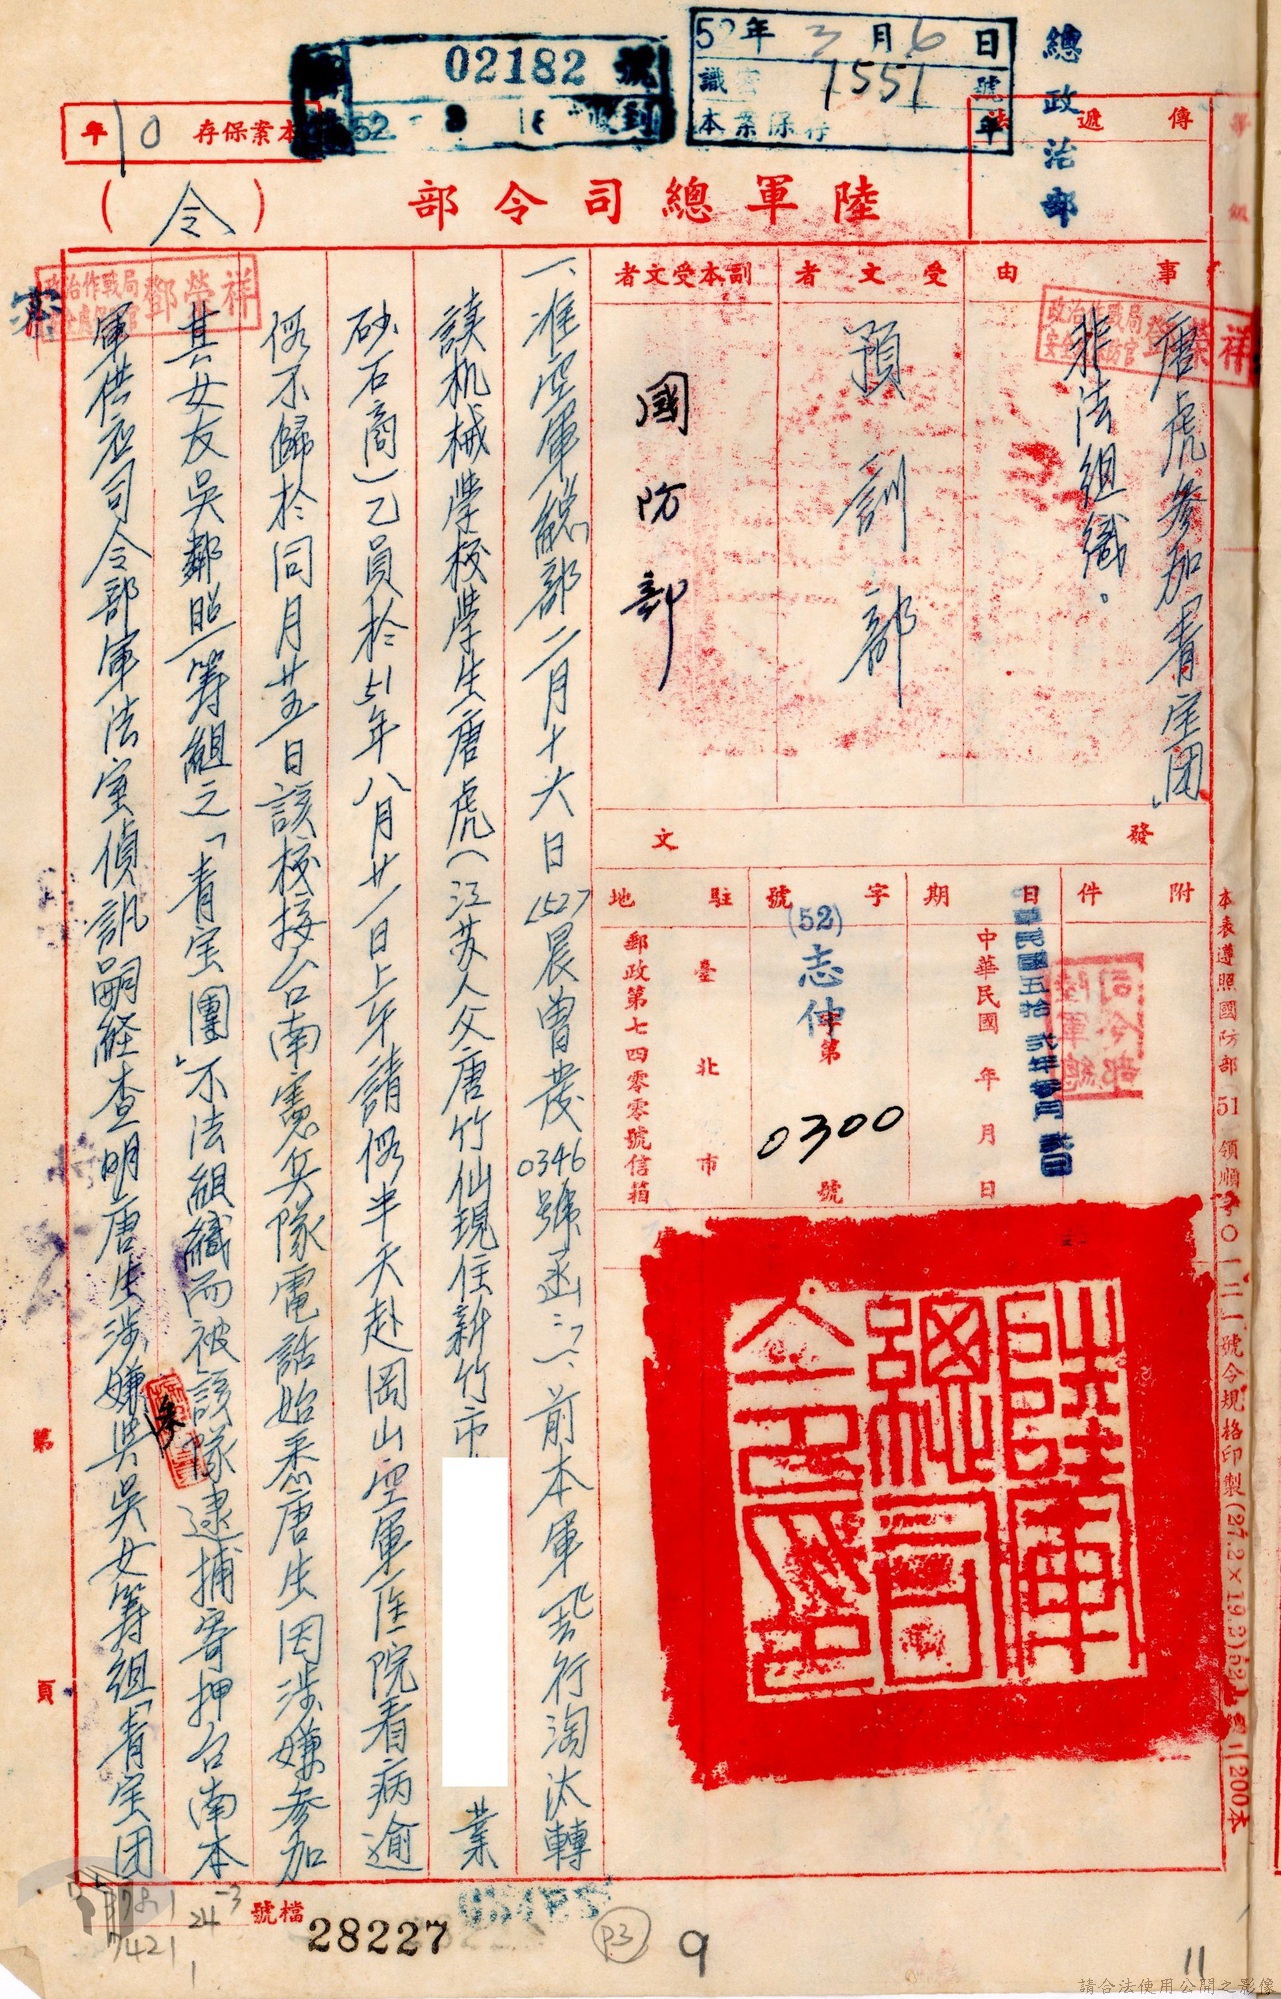 總政治部
52年3月6日
識密1551號
本案保存 年
02182號
52 3
本案保存10年
傳遞法
陸軍總司令部
(令)
密
事由
唐虎參加青宝团非法組織。
受文者
預訓部
副本受文者
國防部
發文
附件
日期
中華民國 年 月 日
字號
(52)志仲字第0300號
駐地
臺北市
郵政第七四零零號信箱
陸軍總司令部
陸軍總司令印
政治作戰局
鄧榮祥
政治作戰局
鄧榮祥
一、准空軍總部二月十六日1527晨曾發0346號函:「一、前本軍飛行淘汰轉
讀机械學校學生唐虎(江苏人父唐竹仙現住新竹市 業
砂石商)乙員於51年八月廿一日上午請假半天赴岡山空軍医院看病逾
假不歸於同月廿五日該校接台南憲兵隊電話始悉唐生因涉嫌參加
其女友吳鄰照籌組之「青宝團」不法組織而被該隊逮捕寄押台南本
軍供应司令部軍法室偵訊嗣経查明唐生涉嫌與吳女籌組「青宝团
第 頁
本表遵照國防部51領順字〇一二一號令規格印製(27.2×19.2)52
1200本
檔號
28227
24-3
7421
1
P3
9
11
請合法使用公開之影像